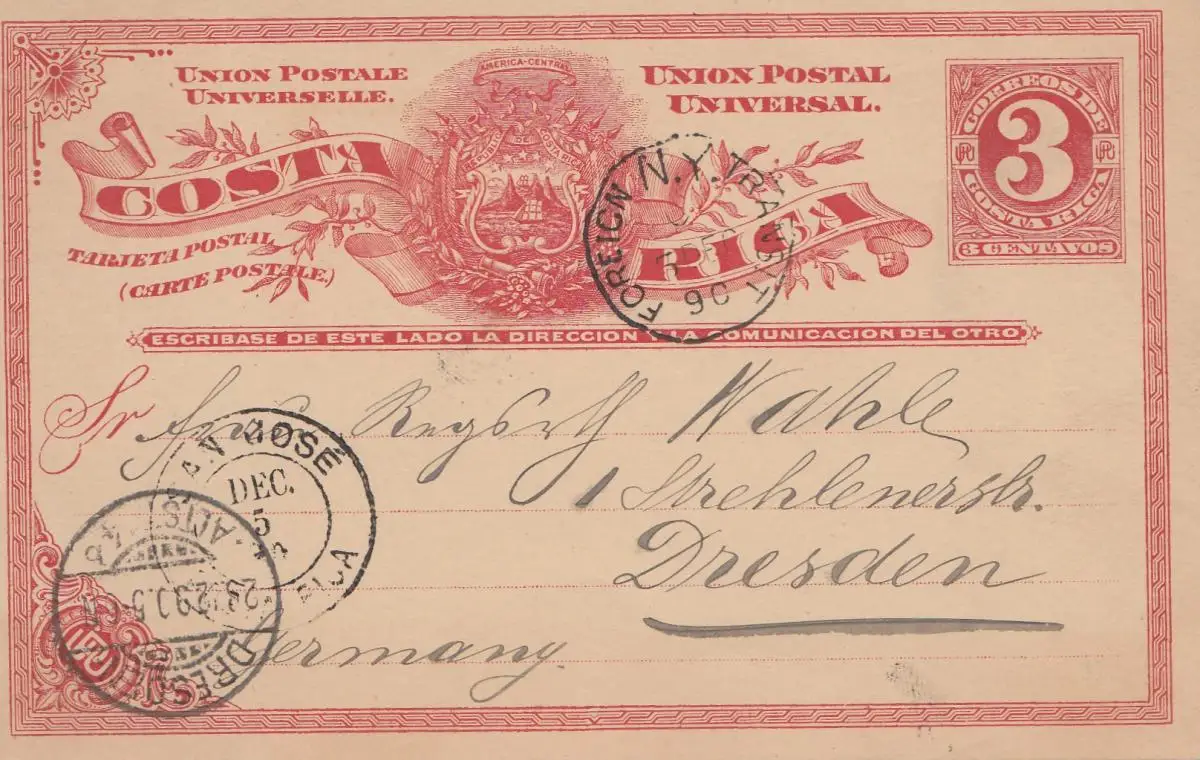 AMERICA-CENTRAL
UNION POSTALE
UNIVERSELLE.
UNION POSTAL
UNIVERSAL.
CORREOS DE
3
COSTA RICA
3 CENTAVOS
COSTA RICA
REPUBLICA DE COSTA RICA
TARJETA POSTAL
(CARTE POSTALE.)
FOREIGN N.Y. TRANSIT
DEC
90
ESCRIBASE DE ESTE LADO LA DIRECCION Y LA COMUNICACION DEL OTRO
Sr Wahle
1 Strehlenerstr.
Dresden
Germany
SAN JOSÉ
DEC.
5
RICA
DRESDEN ALTST. 4b
28 12 90. 5-6N
UPU